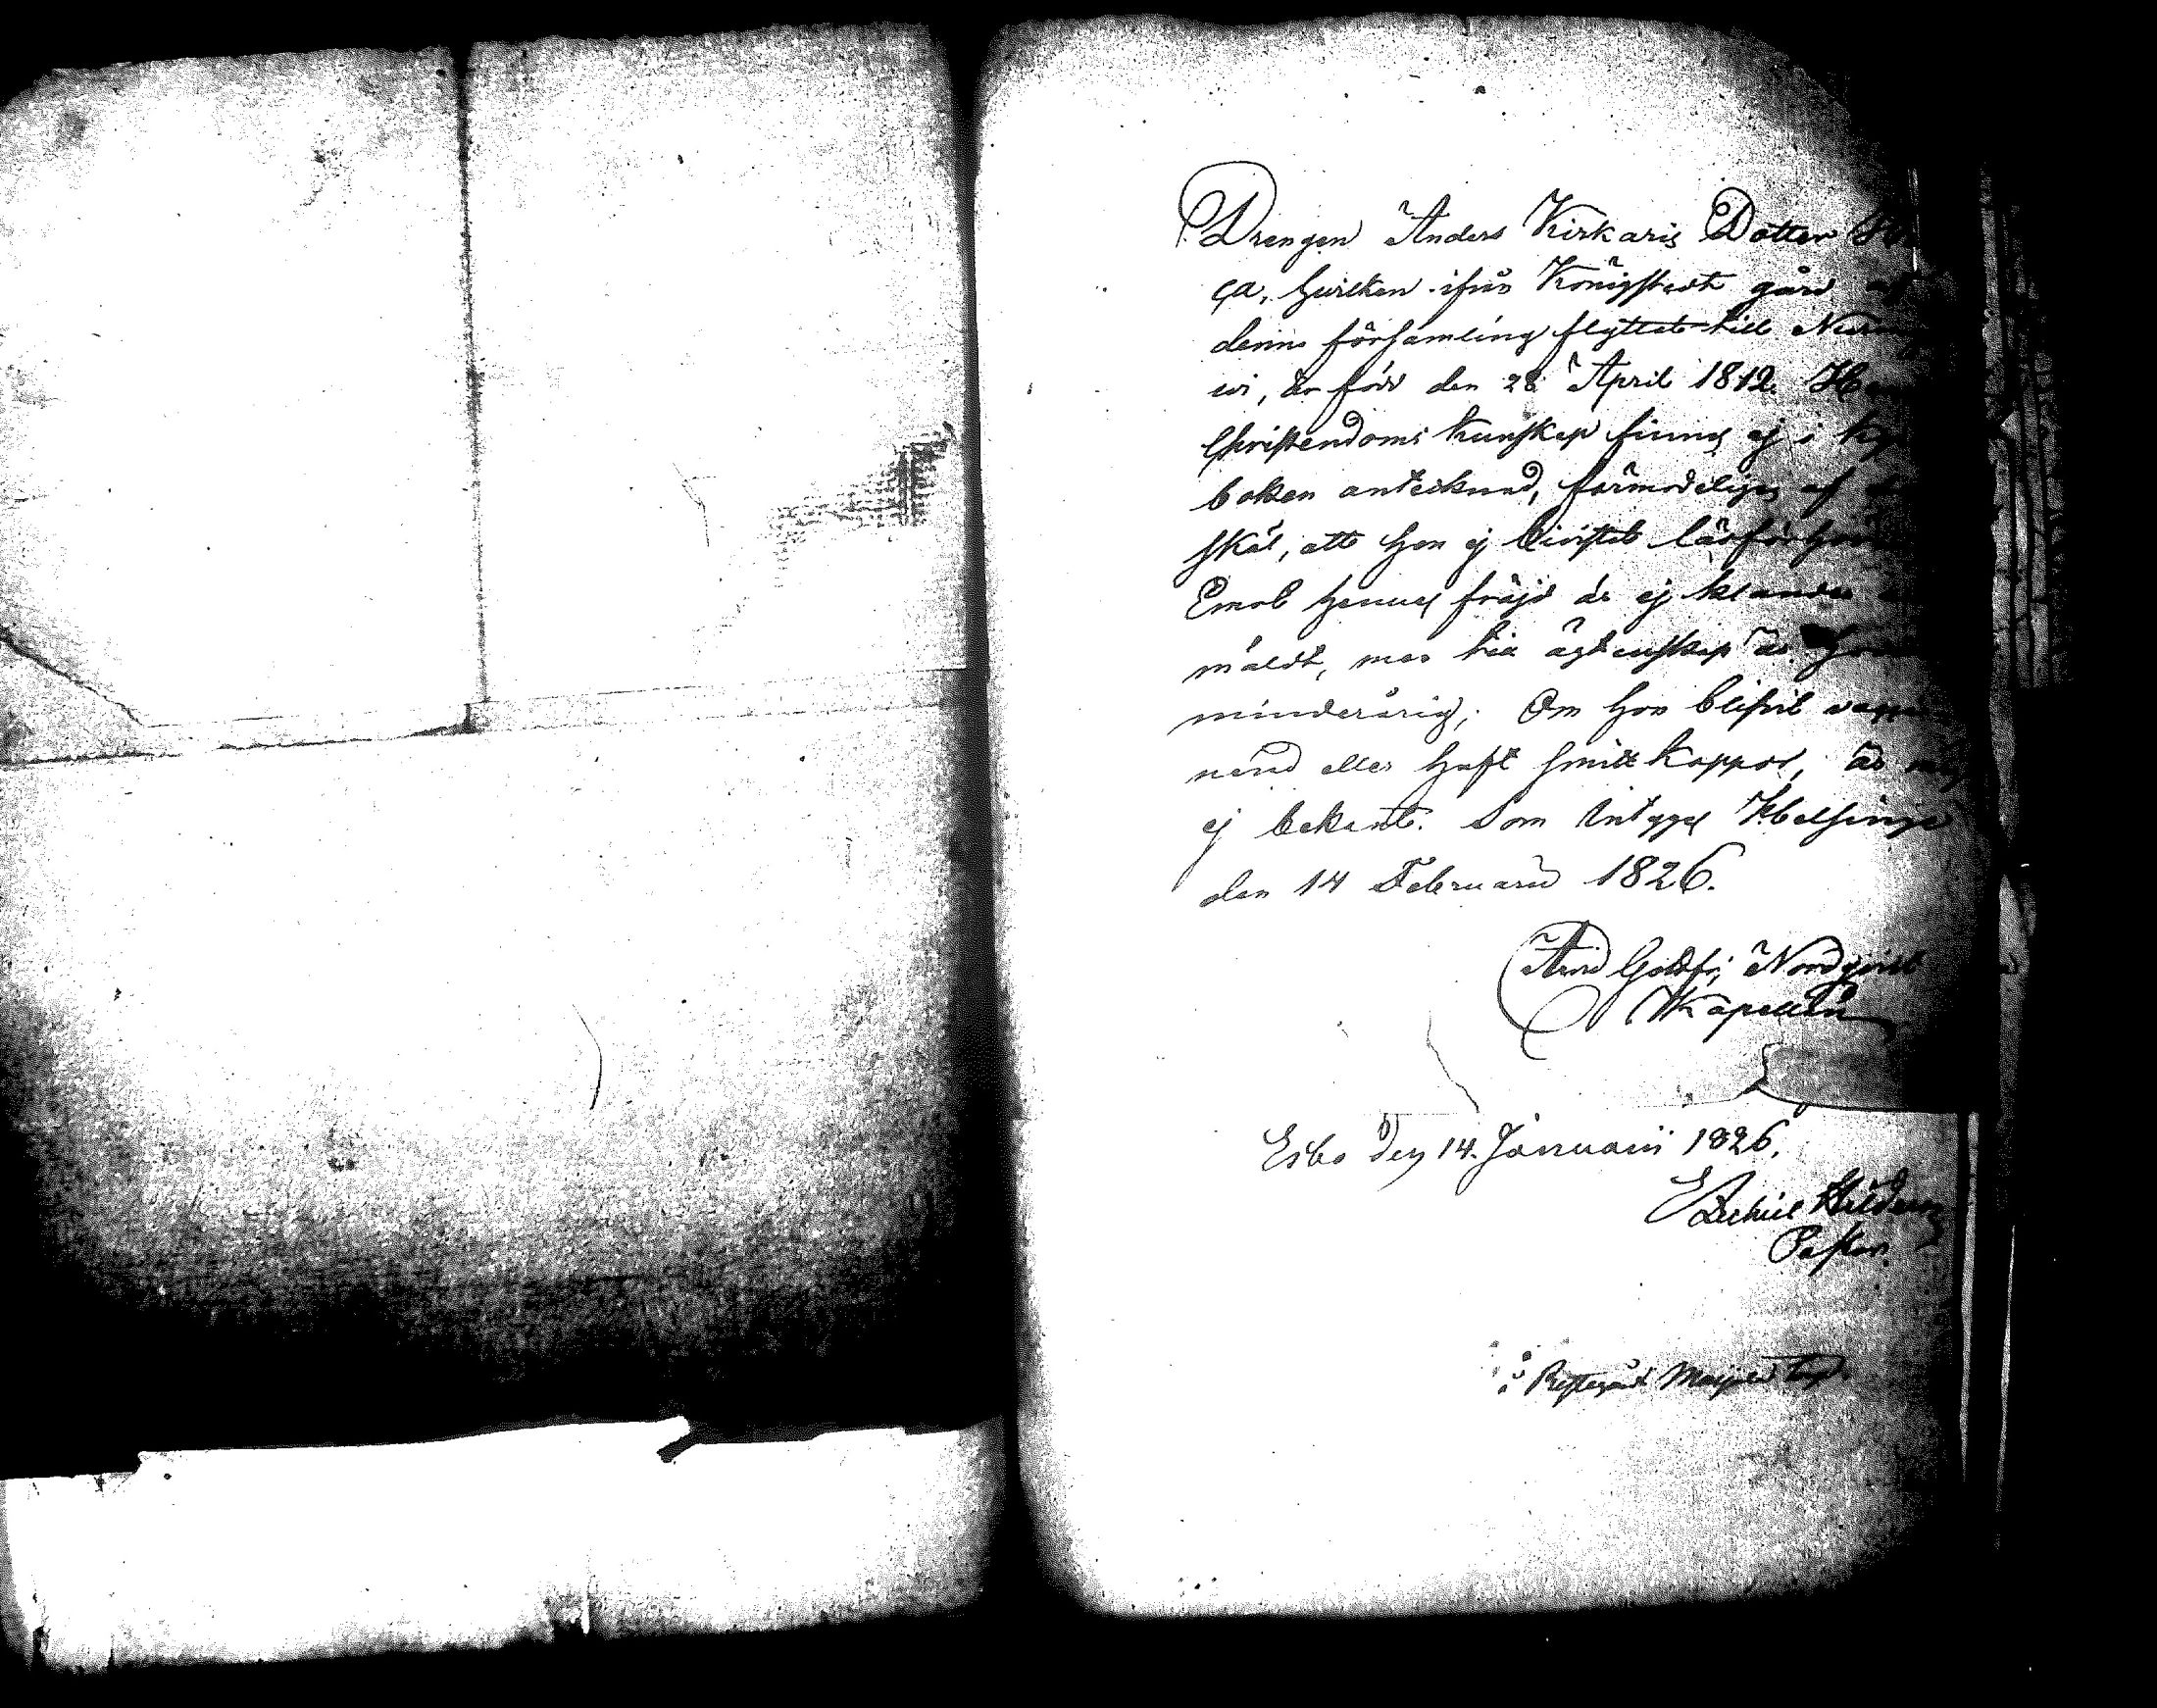 Drengen Anders Kirkaris Dotter
ca, hvilken ifrån Königstedt gård
denne församling flyttat till
wi, är född den 28 April 1812.
Christendoms kunskap finnes ej i
boken antecknad, förmodeligen af
skäl, att hon ej bivistat läsförhören
Emot hennes fräjd är ej klander
mäldt, men till ägtenskap är hon
minderårig; Om hon blifvit
nerad eller haft smittkoppor, är mig
ej bekant. Som intygas Helsinge
den 14 Februarii 1826.
Arvid Gottfr; Nordqvist
Kapellan
Esbo den 14. Januarii 1826.
Pastor